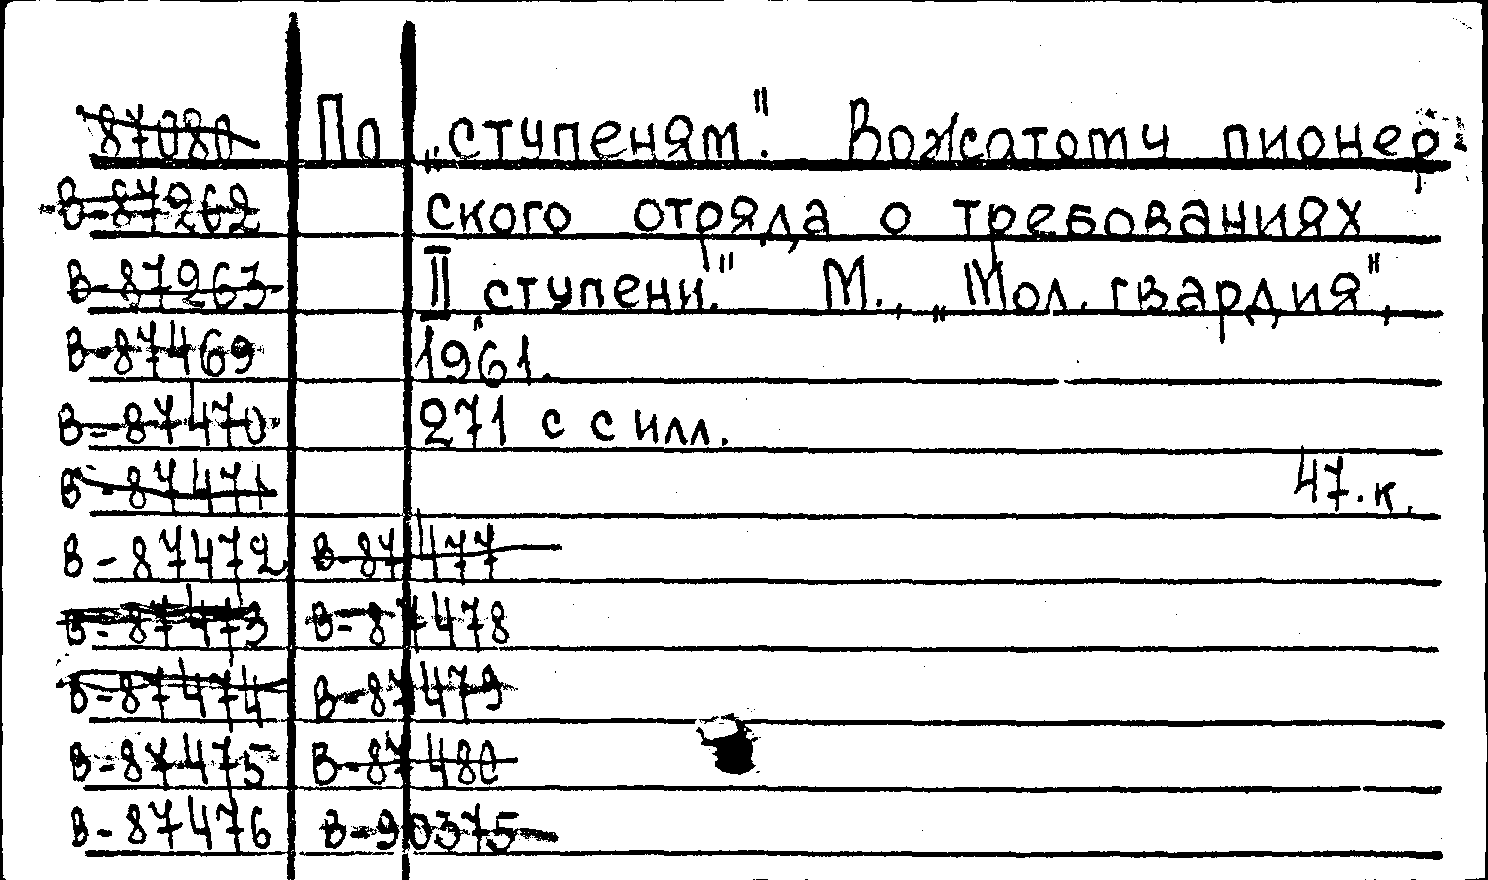 87080 По „ступеням". Вожатому пионер-
В-87262 ского отряда о требованиях
В-87263 II ступени." М., „Мол. гвардия",
В-87469 1961.
В-87470 271 с с илл.
В-87471 47.к.
В-87472 В-87477
В-87473 В-87478
В-87474 В-87479
В-87475 В-87480
В-87476 В-90375